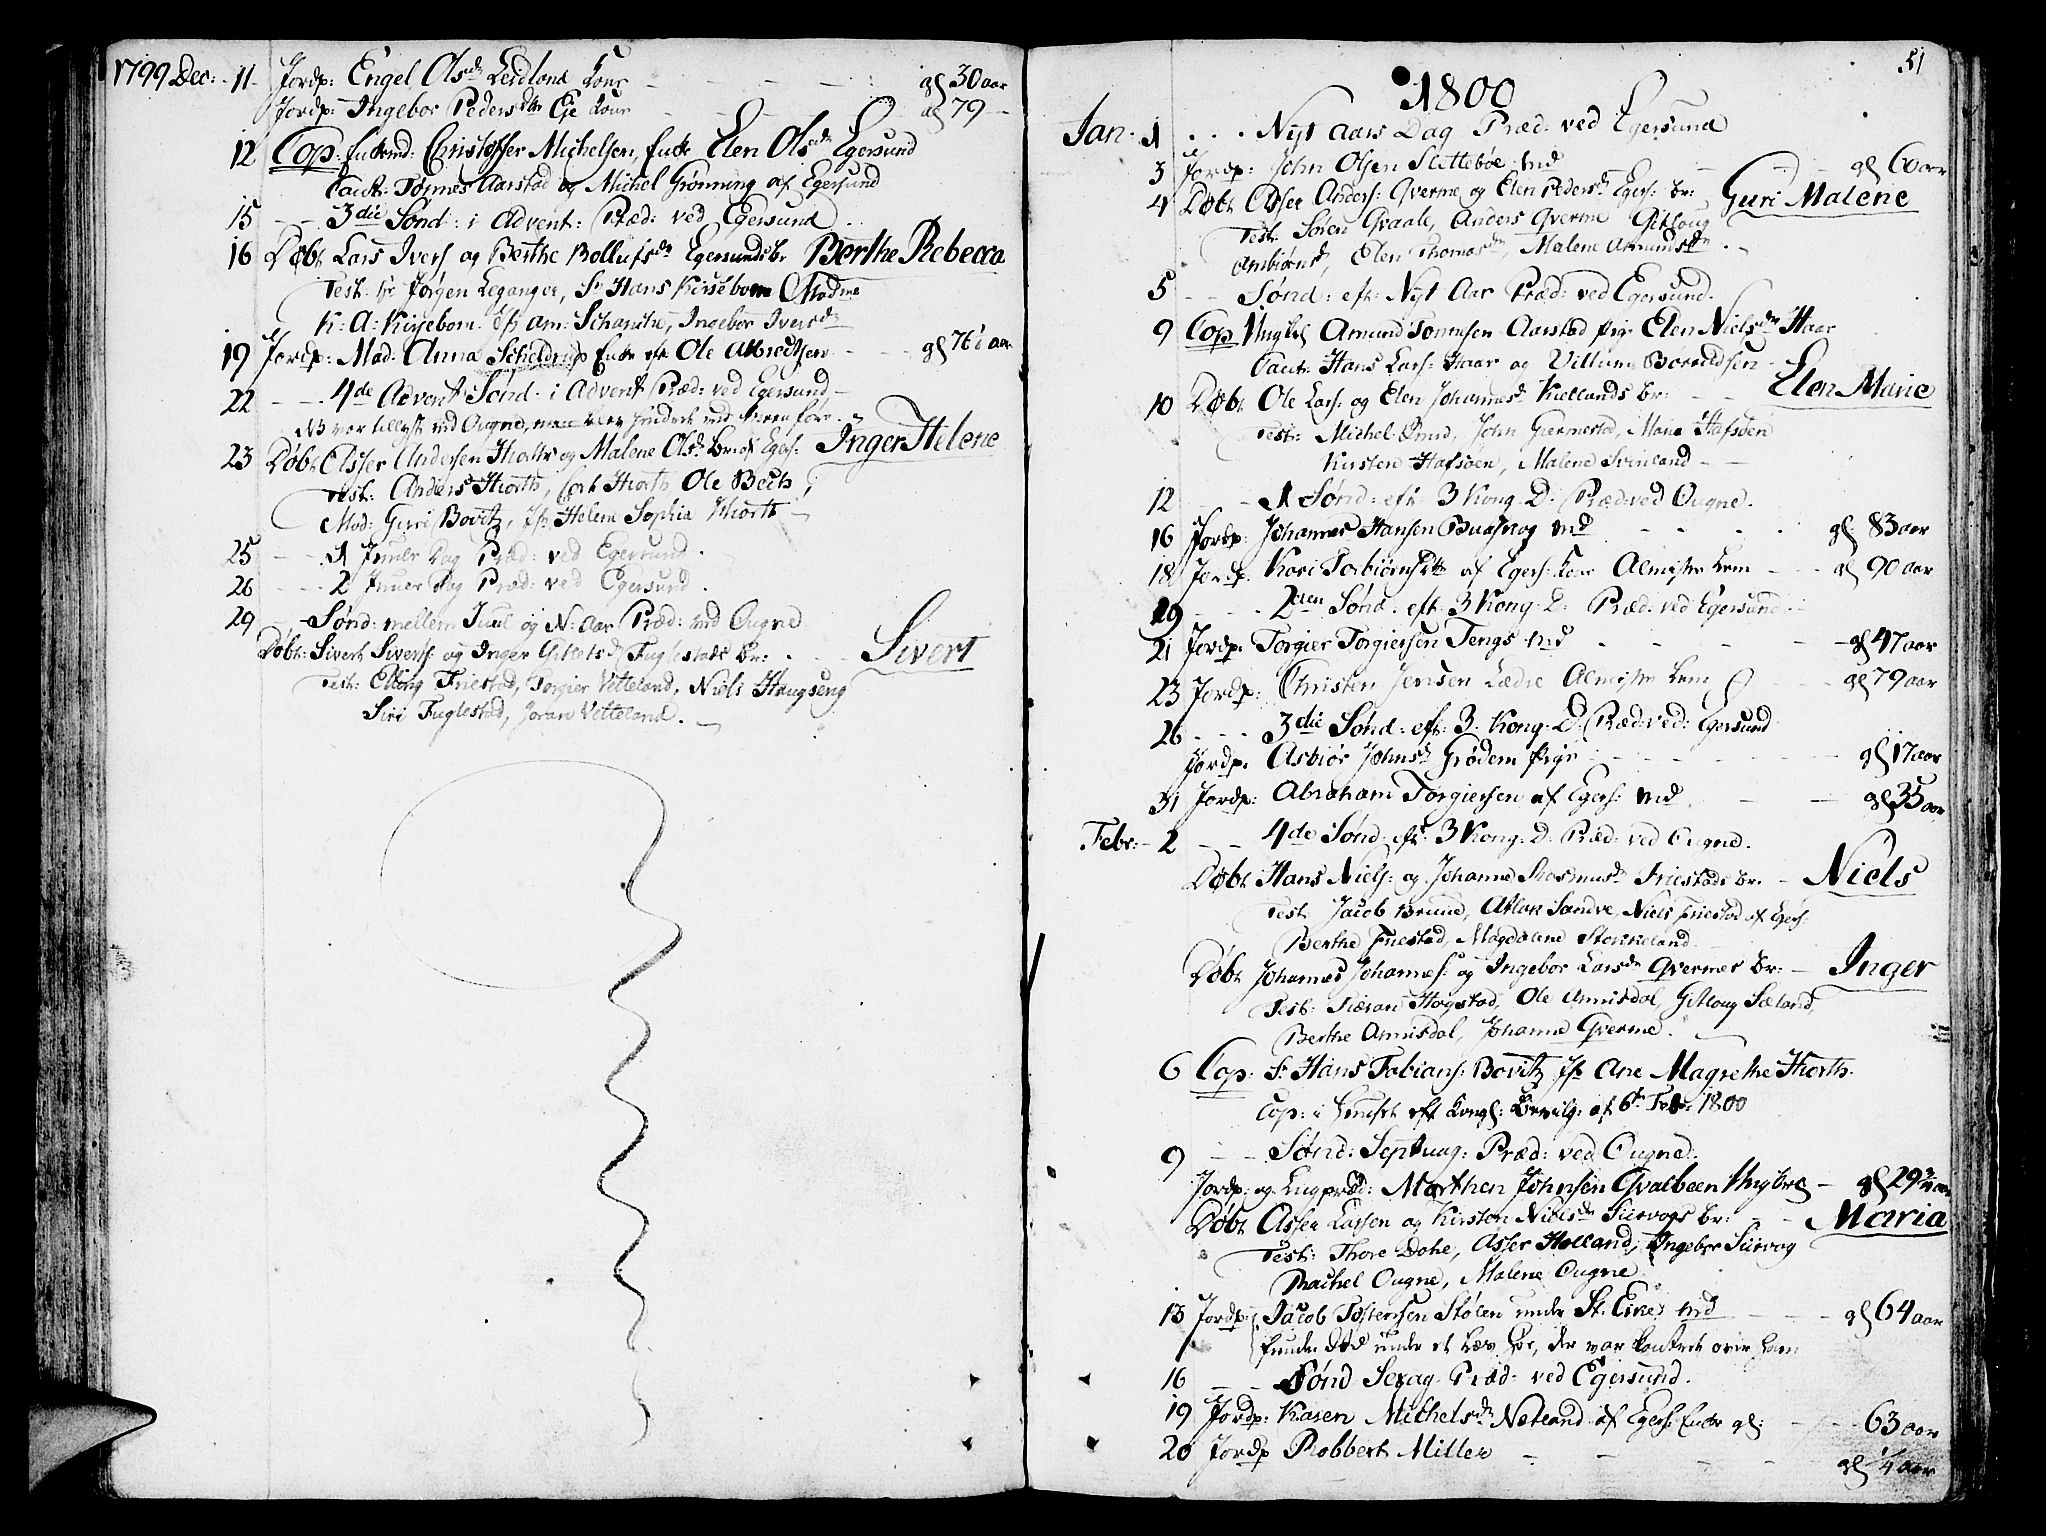 1799 Dec: 11 Jordp: Engel Olsd Leidland Kone gl 30 aar
Jordp: Ingebor Pedersdtr Eje Kone gl 79
12 Cop: Enkemd: Christoffer Michelsen, Enke Elen Olsd Egersund
Caut: Tønnes Aarstad og Michel Grønning af Egersund
15 3die Sønd: i Advent: Præd: ved Egersund
16 Døbt Lars Ivers og Berthe Bollufsd Egersunds br Berthe Rebecca
Test: Hr Jørgen Leganger, Sr Hans Kirsebom Madme
K: A: Kirsebom. Jfr am: Schanche, Ingebor Iversd
19 Jordp: Mad. Anna Scheldrup Enke eft Ole Albredtsen gl 76 aar
22 4de Advent Sønd i Advent Præd: ved Egersund,
NB var tillyst ved Ougne, men blev hindret ved
23 Døbt Asser Andersen Hiorth og Malene Olsd br: af Egers: Inger Helene
Test: Anders Hiorth, Cort Hiorth Ole Bech,
Mad: Guri Bovitz, Jfr Helene Sophia Hiorth
25 1 Juule Dag Præd: ved Egersund.
26 2 Juule Dag Præd: ved Egersund.
29 Sønd: mellem Juul og N: Aar Præd: ved Ougne
Døbt: Sivert Siverts: og Inger Giletsd Fuglestads br: Sivert
Test: Elling Friestad, Torgier Vetteland, Niels Haugseng
Siri Fuglestad, Joran Vetteland.
51
1800
Jan. 1 . . . Nyt aars Dag Præd: ved Egersund
3 Jordp: John Olsen Slettebøe md gl 60 aar
4 Døbt Asser Anders: Qverme og Elen Pedersd Egers: br: Guri Malene
Test: Søren Qvaale, Anders Qverme Gitloug
Ambiørnsd, Elen Thomasd, Malene Amundsd
5 Sønd: eft: Nyt Aar Præd: ved Egersund.
9 Cop Ungkl Amund Tønnesen Aarstad pige Elen Nielsdtr Haar
Caut: Hans Lars: Haar og Villum Boruldsen
10 Døbt Ole Lars: og Elen Johannesd Kiellands br: Elen Marie
Test: Michel Omd, John Giermestad, Maria Hafsøen
Kirsten Hafsøen, Malene Svinland
12 1 Sønd: eft 3 Kong. D: Præd: ved Ougne.
16 Jordp: Johannes Hansen Bugskog md gl 83 aar
18 Jordp. Kari Torbiørnsdtr af Egers: Kone Almisse Lem gl 90 aar
19 2den Sønd: eft: 3 Kong. D: Præd: ved Egersund
21 Jordp: Torgier Torgiersen Tengs md gl 47 aar
23 Jordp: Christen Jensen Lædre Almisse Lem gl 79 aar
26 3die Sønd: eft: 3. Kong. D: Præd: ved: Egersund
Jordp: Asbiør Johnsd Grødem pige gl 17 aar
31 Jordp: Abraham Torgiersen af Egers: md gl 35 aar
Febr: 2 4de Sønd: eft: 3 Kong. D. Præd: ved Ougne.
Døbt Hans Niels: og Johanne Rasmusd Friestads br. Niels
Test Jacob Brund, Atlak Sandve, Niels Friestad af Egers:
Berthe Friestad, Magdalene Stokkeland
Døbt Johannes Johannes: og Ingebor Larsd Qvermes br: Inger
Test: Tiøran Hogstad, Ole Amisdal, Gitloug Sæland,
Berthe Amisdal, Johanna Qverme.
6 Cop. Sr Hans Fabians: Bovitz Jfr Ane Magrethe Hiorth.
Cop: i Huuset eft Kongl: Bevilg: af 6t Febr: 1800
9 Sønd: Septuag: Præd: ved Ougne.
Jordp: og Liigpræd: Marthen Johnsen Qvalbeen Ungkarl gl 29 aar
Døbt Asser Larsen og Kirsten Nielsd Siirvogs br: Maria
Test: Thore Dohe, Asser Holland, Ingebor Siirvog
Rachel Ougne, Malene Ougne
13 Jordp: Jacob Tostensen Stølen under St. Eie md gl 64 aar
funden død under et læs høe, der var kantret over ham
16 Sønd Sexag. Præd. ved Egersund.
19 Jordp: Karen Michelsd Netland af Egers: Enke gl: 63 aar
20 Jordp Robbert Miller gl 4 aar